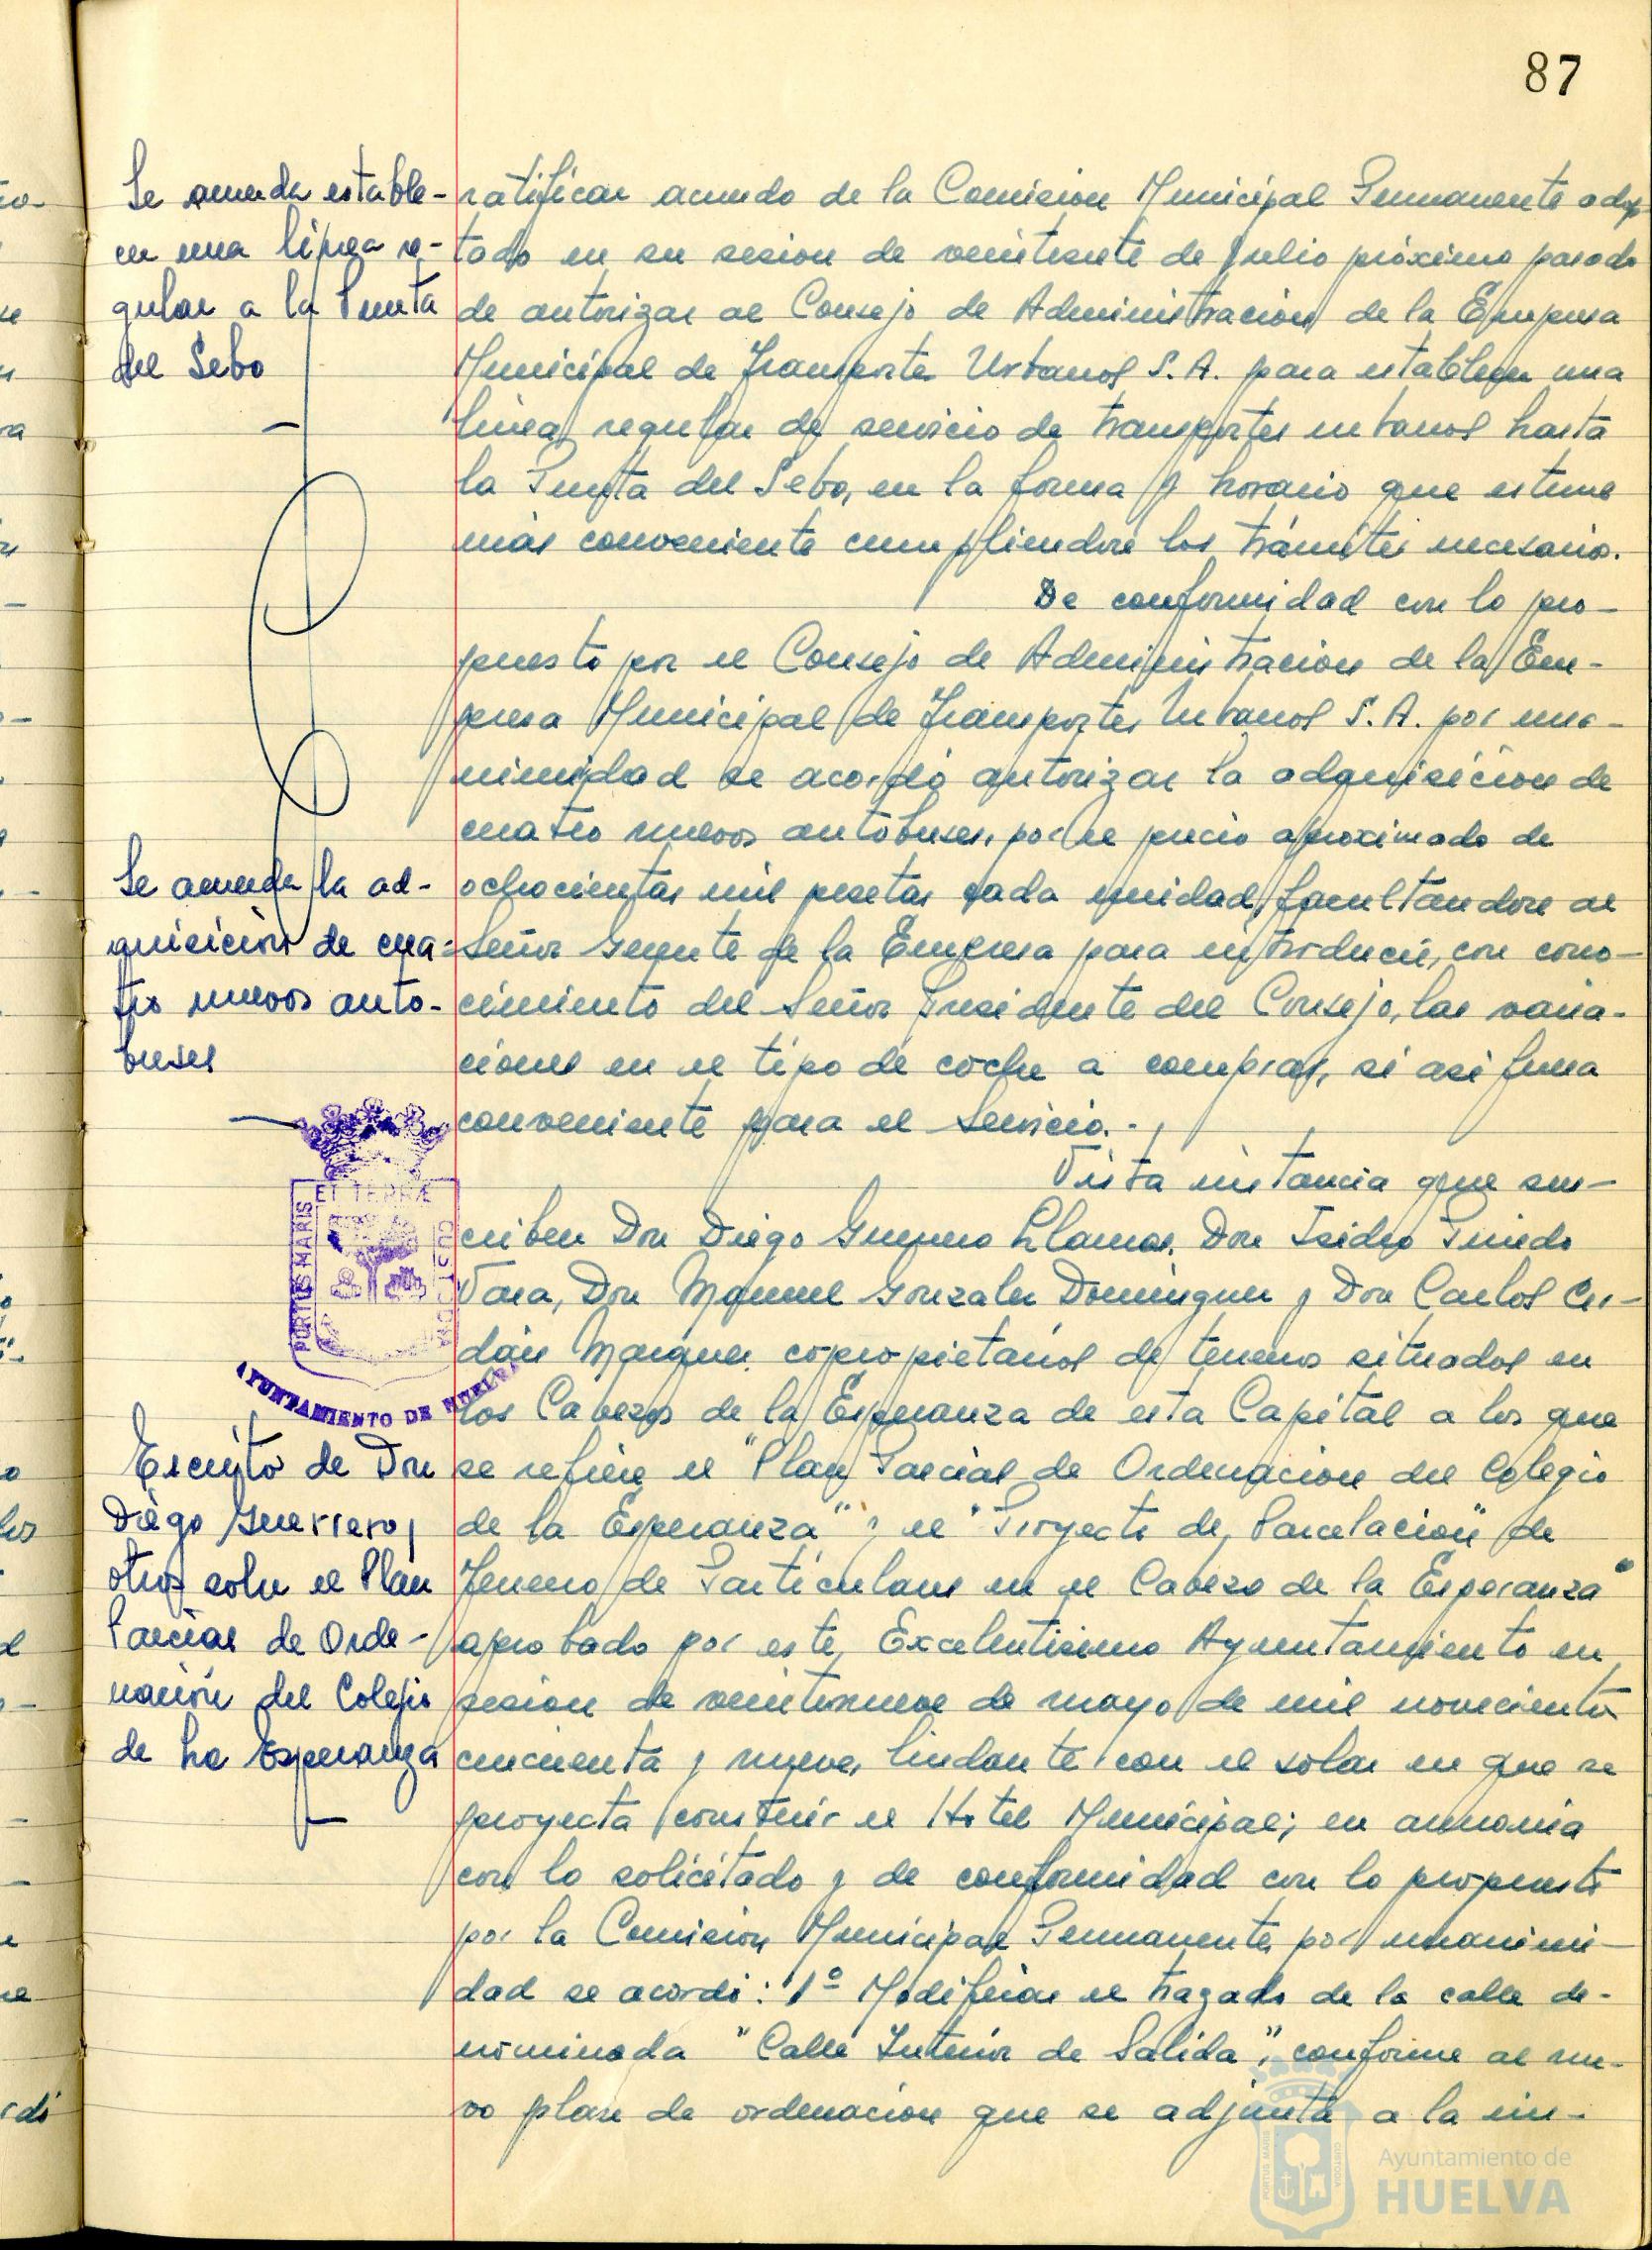 87
Se acuerda estable-
cer una línea re-
gular a la Punta
del Sebo
ratificar acuerdo de la Comision Municipal Permanente adop-
tado en su sesion de veintisiete de julio próximo pasado
de autorizar al Consejo de Administracion de la Empresa
Municipal de Transportes Urbanos S. A. para establecer una
linea regular de servicio de transportes urbanos hasta
la Punta del Sebo, en la forma y horario que estime
más conveniente cumpliendose los trámites necesarios.
De conformidad con lo pro-
puesto por el Consejo de Administracion de la Em-
presa Municipal de Transportes Urbanos S. A. por una-
nimidad se acordó autorizar la adquisicion de
cuatro nuevos autobuses, por el precio aproximado de
ochocientas mil pesetas cada unidad, facultandose al
Señor Gerente de la Empresa para introducir, con cono-
cimiento del Señor Presidente del Consejo, las varia-
ciones en el tipo de coche a comprar, si asi fuera
conveniente para el Servicio.-
Se acuerda la ad-
quisición de cua-
tro nuevos auto-
buses
Vista instancia que sus-
criben Don Diego Guerrero Llamas, Don Isidro Pinedo
Vara, Don Manuel Gonzalez Dominguez y Don Carlos Cer-
dán Marquez copropietarios de terrenos situados en
los Cabezos de la Esperanza de esta Capital a los que
se refiere el "Plan Parcial de Ordenacion del Colegio
de la Esperanza" y el "Proyecto de Parcelacion de
Terreno de Particulares en el Cabezo de la Esperanza"
aprobado por este Excelentisimo Ayuntamiento en
sesion de veintinueve de mayo de mil novecientos
cincuenta y nueve, lindante con el solar en que se
proyecta construir el Hotel Municipal; en armonia
con lo solicitado y de conformidad con lo propuesto
por la Comision Municipal Permanente por unanimi-
dad se acordó: 1º Modificar el trazado de la calle de-
nominada "Calle Interior de Salida", conforme al nue-
vo plan de ordenacion que se adjunta a la ins-
PORTUS MARIS
ET TERRÆ
CUSTODIA
AYUNTAMIENTO DE HUELVA
Escrito de Don
Diego Guerrero y
otros sobre el Plan
Parcial de Orde-
nación del Colegio
de La Esperanza
Ayuntamiento de
HUELVA